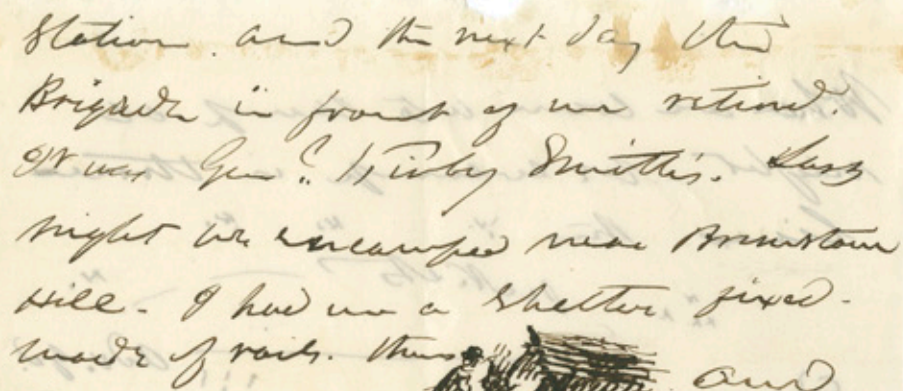 Station. and the next day the
Brigade in front of us retired.
It was Genl. Kirby Smith's. Last
night we encamped near Brimstone
Hill. I had us a shelter fixed.
made of rails. thus and